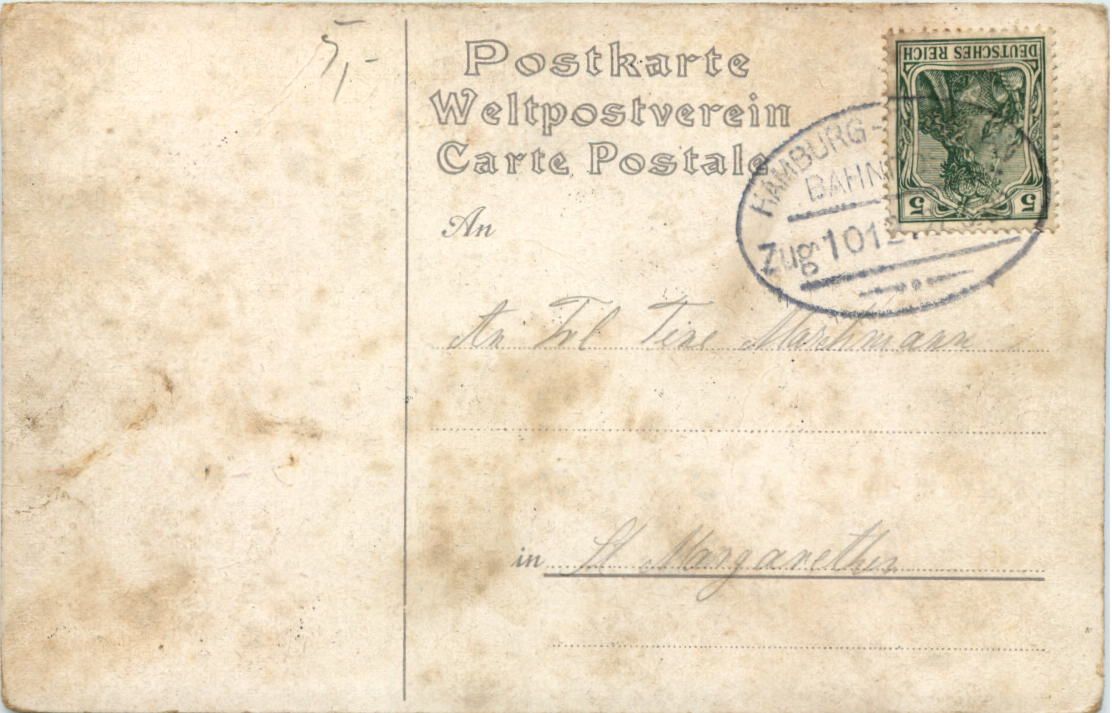 5,-
Postkarte
Weltpostverein
Carte Postale
DEUTSCHES REICH
5 5
HAMBURG-
Zug 101
An
An Frl Tine Marthmann
in St Margarethen